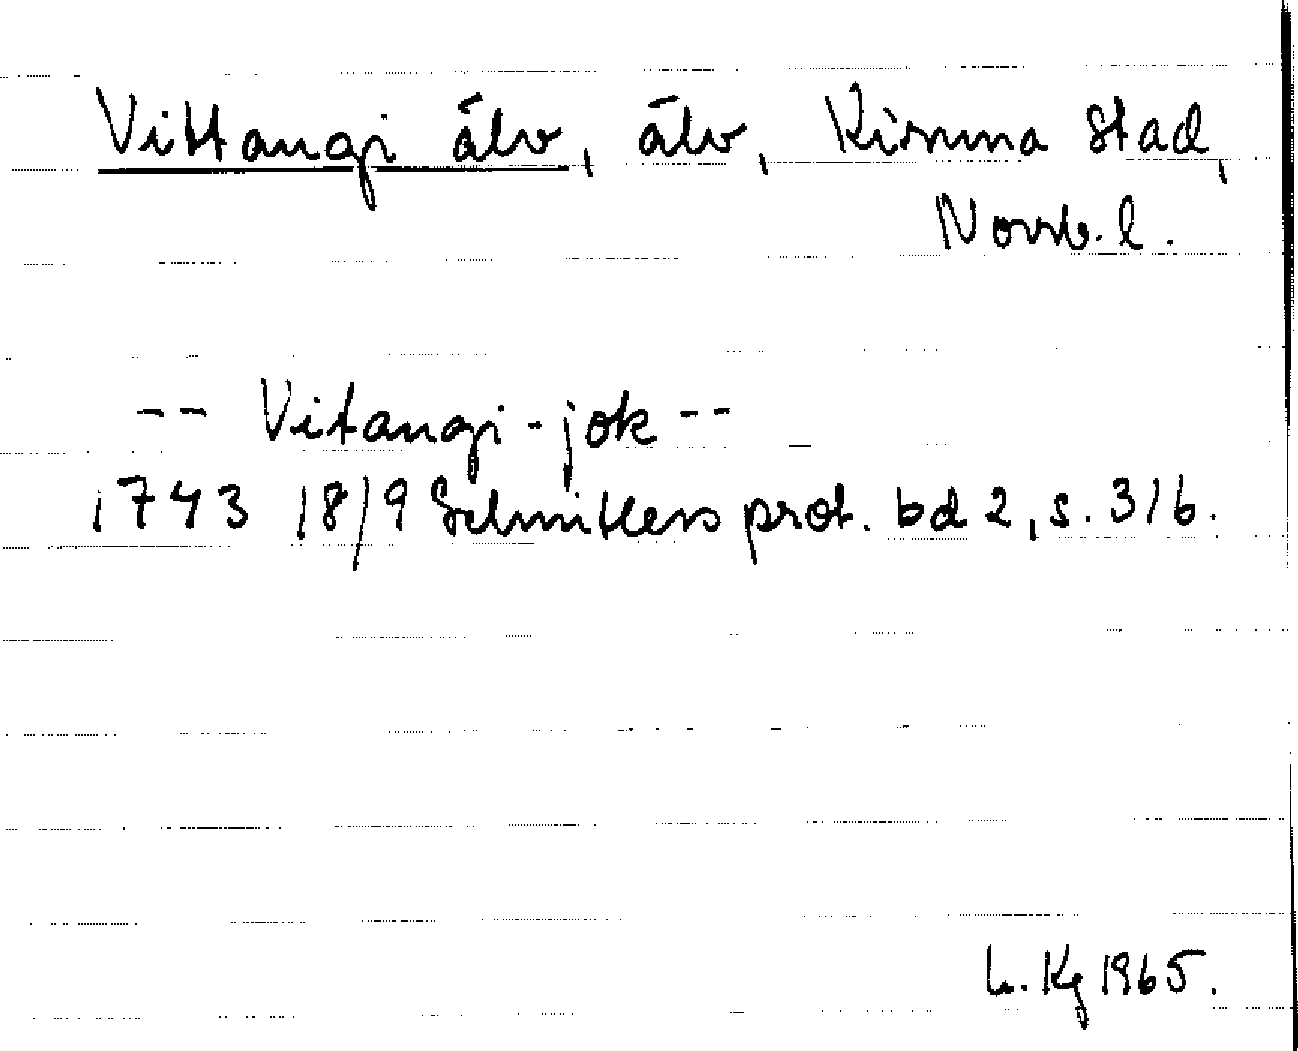 Vittangi älv, älv, Kiruna stad,
Norrb. l.
-- Vitangi-jok --
1743 18/9 Schnitlers prot. bd 2, s. 316.
L. Kg 1965.